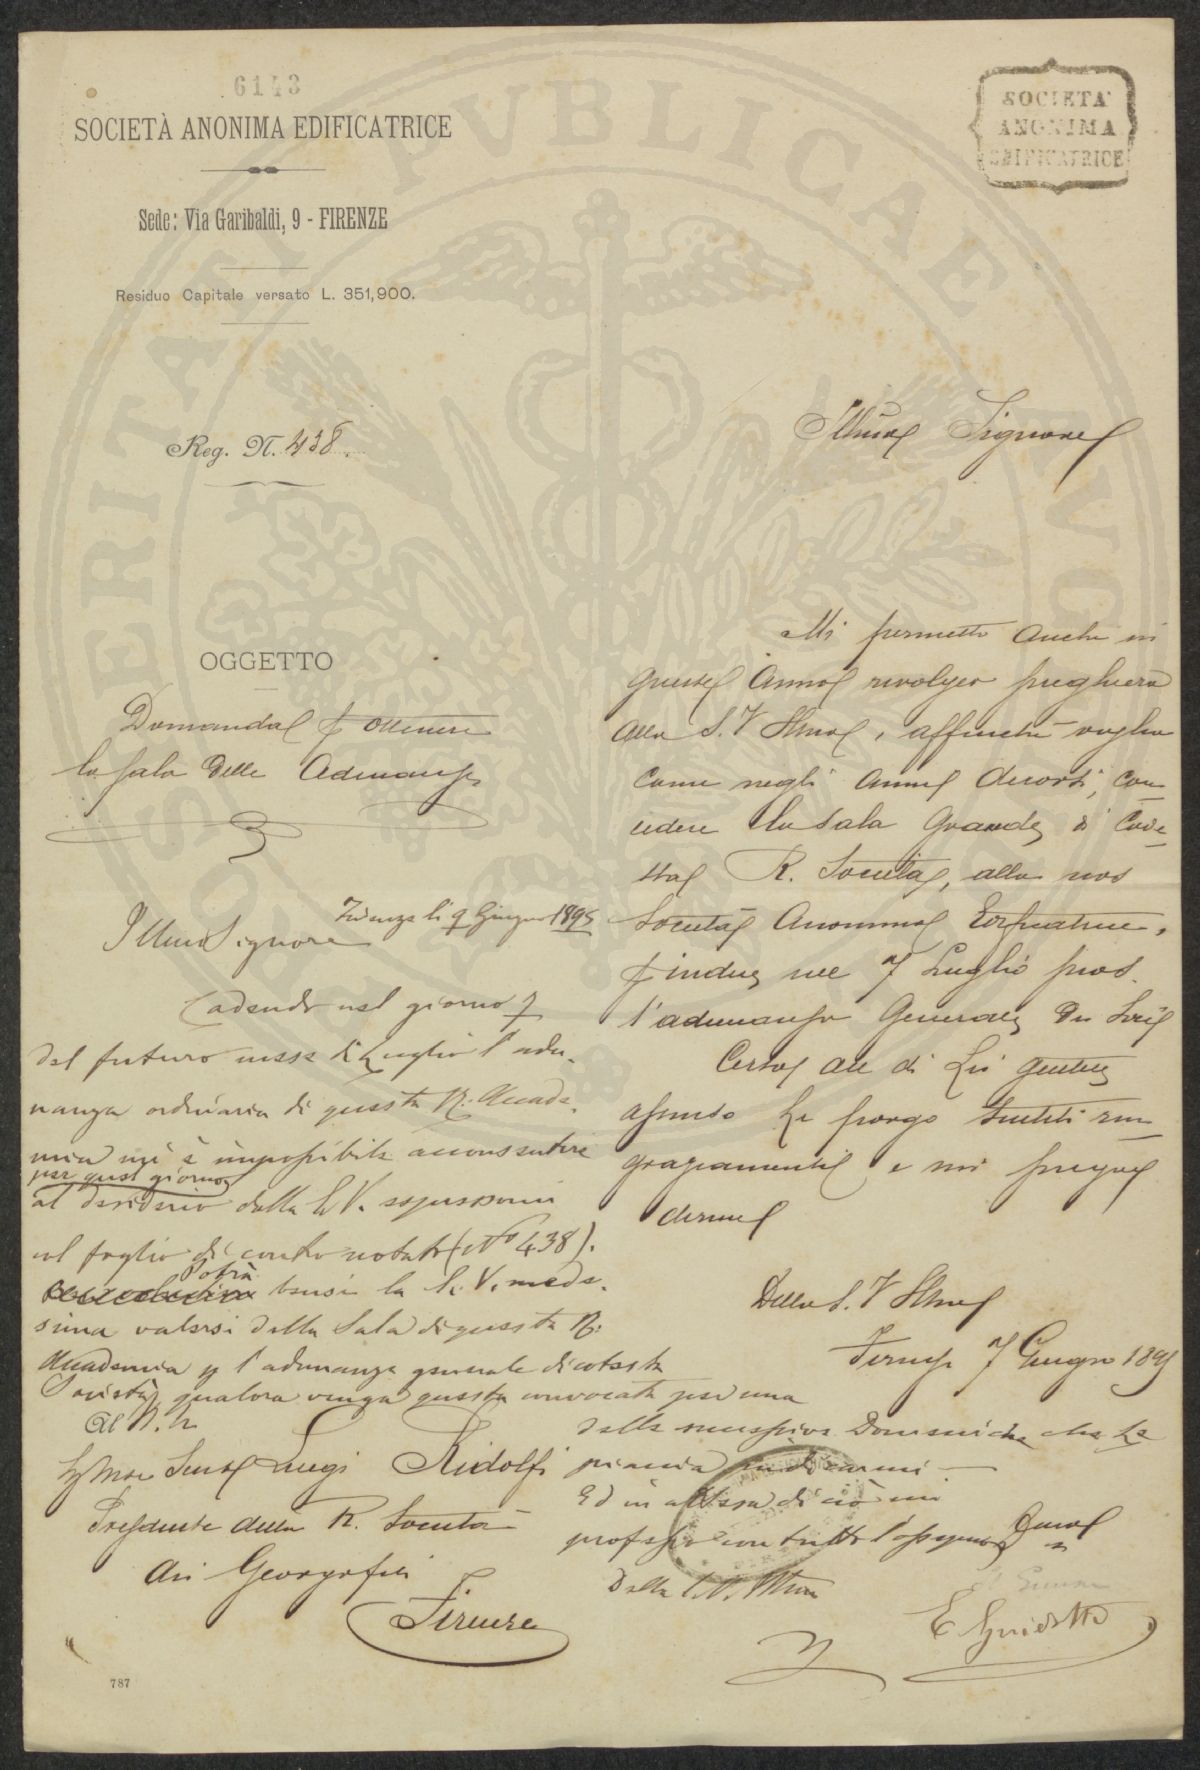 6143
SOCIETÀ ANONIMA EDIFICATRICE
Sede: Via Garibaldi, 9 - FIRENZE
Residuo Capitale versato L. 351,900.
Reg. N. 438
SOCIETA'
ANONIMA
EDIFICATRICE
OGGETTO
Domanda p ottenere
la sala delle Adunanze
Illmo Signore
Mi permetto anche in
quest Anno rivolger preghiera
alla S. V Illma, affinchè voglia
come negli anni decorsi, con
cedere la sala Grande di Code
sta R. Società, alla nos
Società Anonima Edificatrice,
p indire nel 7 Luglio pros.
l'adunanza Generale dei Soci
Certo che di Lei
Le porgo sentiti rin
graziamenti e mi pregio
dirmi
Della S. V Illma
Firenze 7 Giugno 189
Al N. U.
Luigi Ridolfi
Presidente della R. Società
dei Georgofili
Firenze
Firenze li 9 Giugno 1895
Illmo Signore
Cadendo nel giorno 7
del futuro mese di Luglio l'adu-
nanza ordinaria di questa R. Accade-
mia mi è impossibile acconsentire
per quel giorno
al desiderio dalla S. V. espressomi
col foglio di contro notato (No 438).
Potrà
bensì la S. V. mede-
sima valersi della Sala di questa R.
Accademia p l'adunanza generale di cotesta
Società, qualora venga questa convocata per una
delle successive Domeniche che Le
piaccia indicarmi
Ed in attesa di ciò mi
professo con tutto l'ossequio
Della S. V. Illma
787
VERITATI PVBLICAE